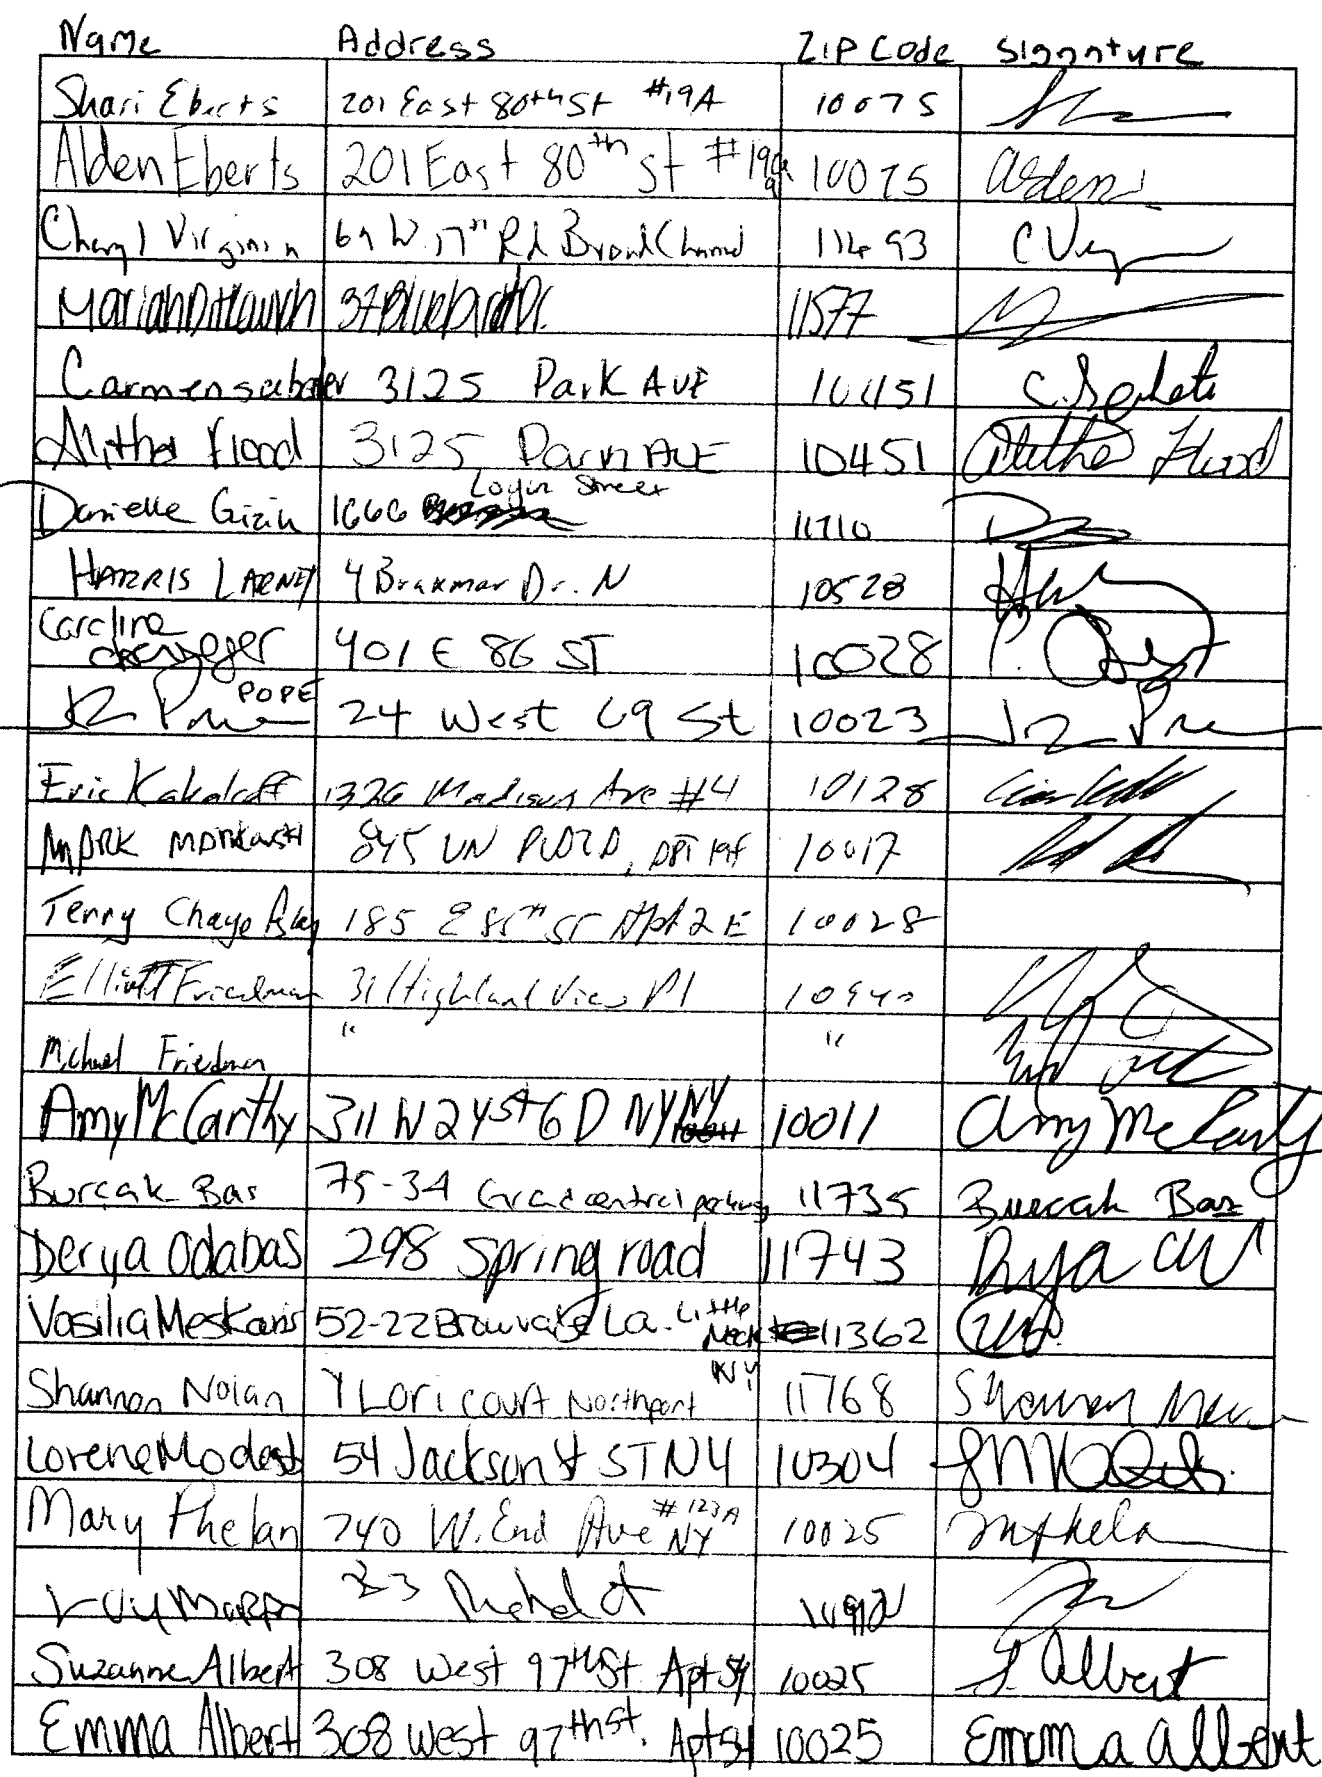 Name Address ZIP Code Signature
Shari Eberts 201 East 80th St #19A 10075
Alden Eberts 201 East 80th St #19a 10075 Alden
Cheryl Virginia 69 W. 17th Rd Broad Channel 11693 C Virg
37 Bluebird Dr. 11577
Carmen sabater 3125 Park AVE 10451 C. Sabate
Alitha Flood 3125 Park AVE 10451 Alitha Flood
Login Street
Danielle 1666 11710
HARRIS LARNEY 4 Braxmar Dr. N 10528
Caroline
401 E 86 ST 10028
POPE 24 West 69 St 10023
Eric 1326 Madison Ave #4 10128
MARK 845 UN PLAZA, APT 19f 10017
Terry Chaye 185 E 85th ST Apt 2E 10028
Elliott Friedman 31 Highland View Pl 10940
Michael Friedman " "
Amy McCarthy 311 W 24 St 6D NY NY 10011 Amy McCarthy
Burcak Bas 75-34 Grandcentral parkway 11735 Burcak Bas
Derya Odabas 298 Spring road 11743 Derya
Vasilia Meskouris 52-22 Browvale La. Little Neck 11362
NY
Shannon Nolan 7 Lori court Northport 11768 Shannon
Lorene Modest 54 Jackson St ST NY 10304
Mary Phelan 740 W. End Ave #123A NY 10025
23
Suzanne Albert 308 West 97th St. Apt 54 10025 S. Albert
Emma Albert 308 West 97th st. Apt 54 10025 Emma Albert